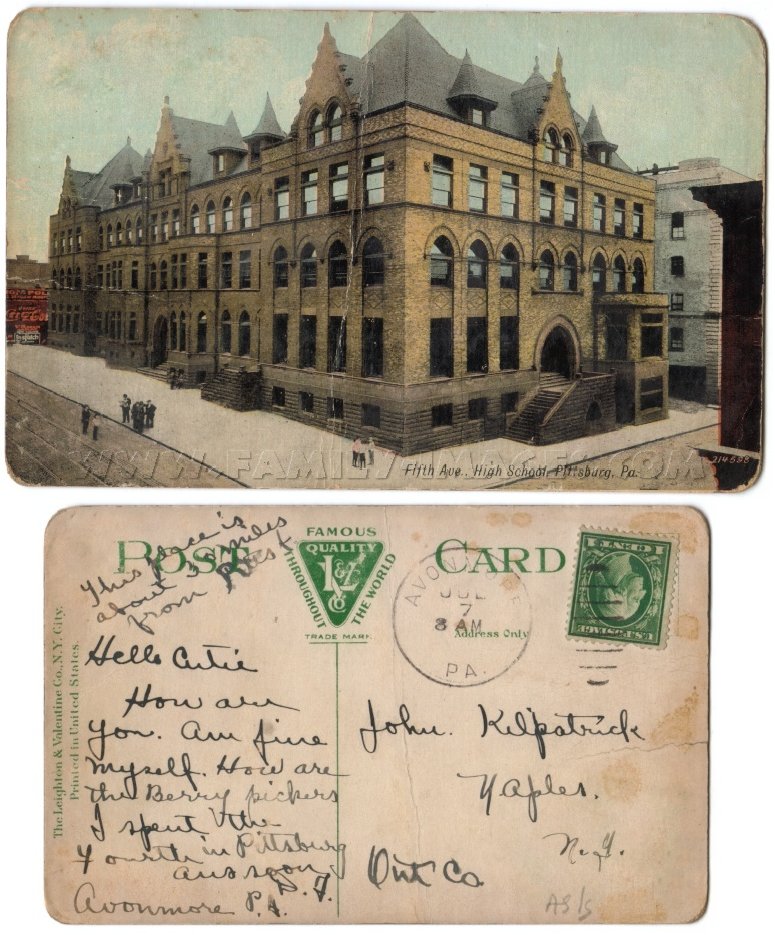 Fifth Ave., High School, Pittsburg, Pa.
214538
WWW.FAMILY-IMAGES.COM
POST CARD
FAMOUS
QUALITY
L & V
Co
THROUGHOUT
THE WORLD
TRADE MARK.
Address Only
The Leighton & Valentine Co., N.Y. City.
Printed in United States.
AVONMORE
JUL
7
8 AM
PA.
This place is
about 3 miles
from
Hello Cutie
How are
you. Am fine
myself. How are
the Berry pickers
I spent the
Fourth in Pittsburg
ans soon
Avonmore P.A.
John. Kilpatrick
Naples.
N.Y.
Ont Co.